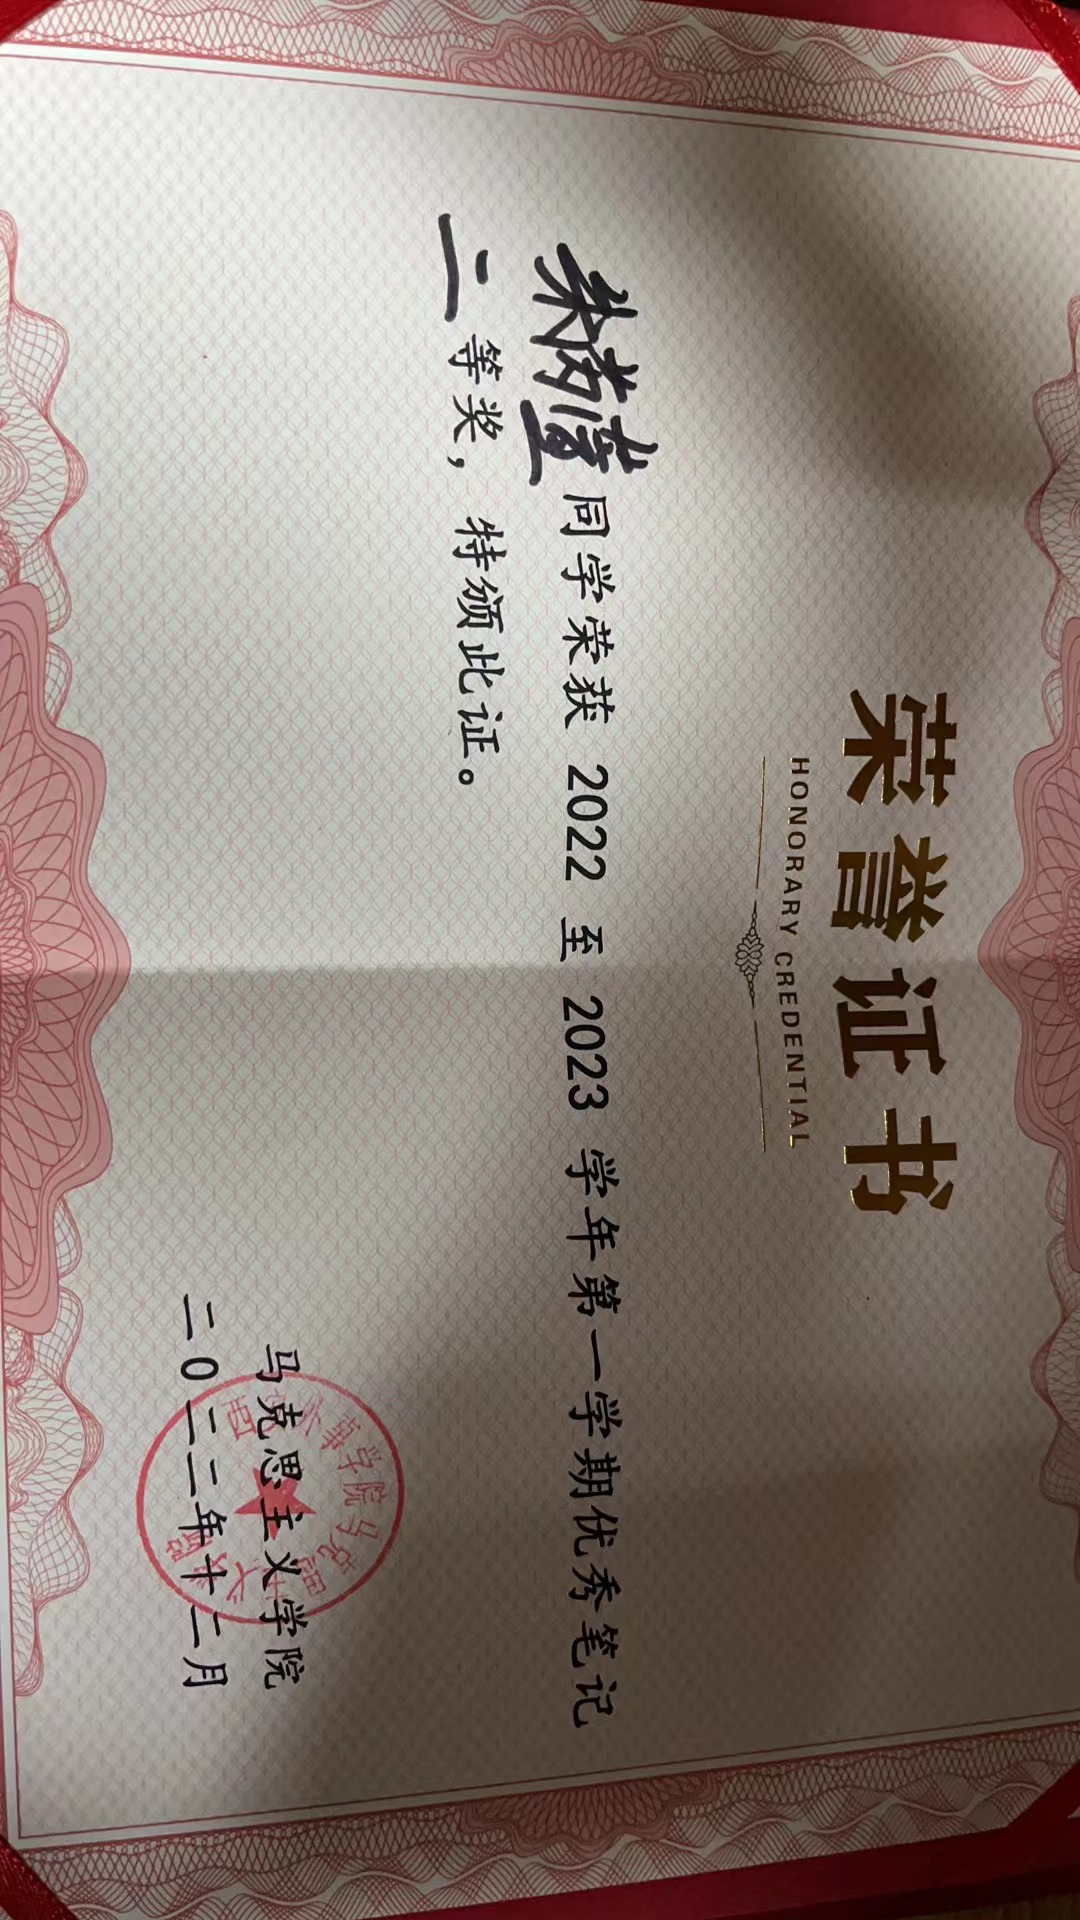 荣誉证书
HONORARY CREDENTIAL
同学荣获 2022 至 2023 学年第一学期优秀笔记
二等奖，特颁此证。
马克思主义学院
二0二二年十二月